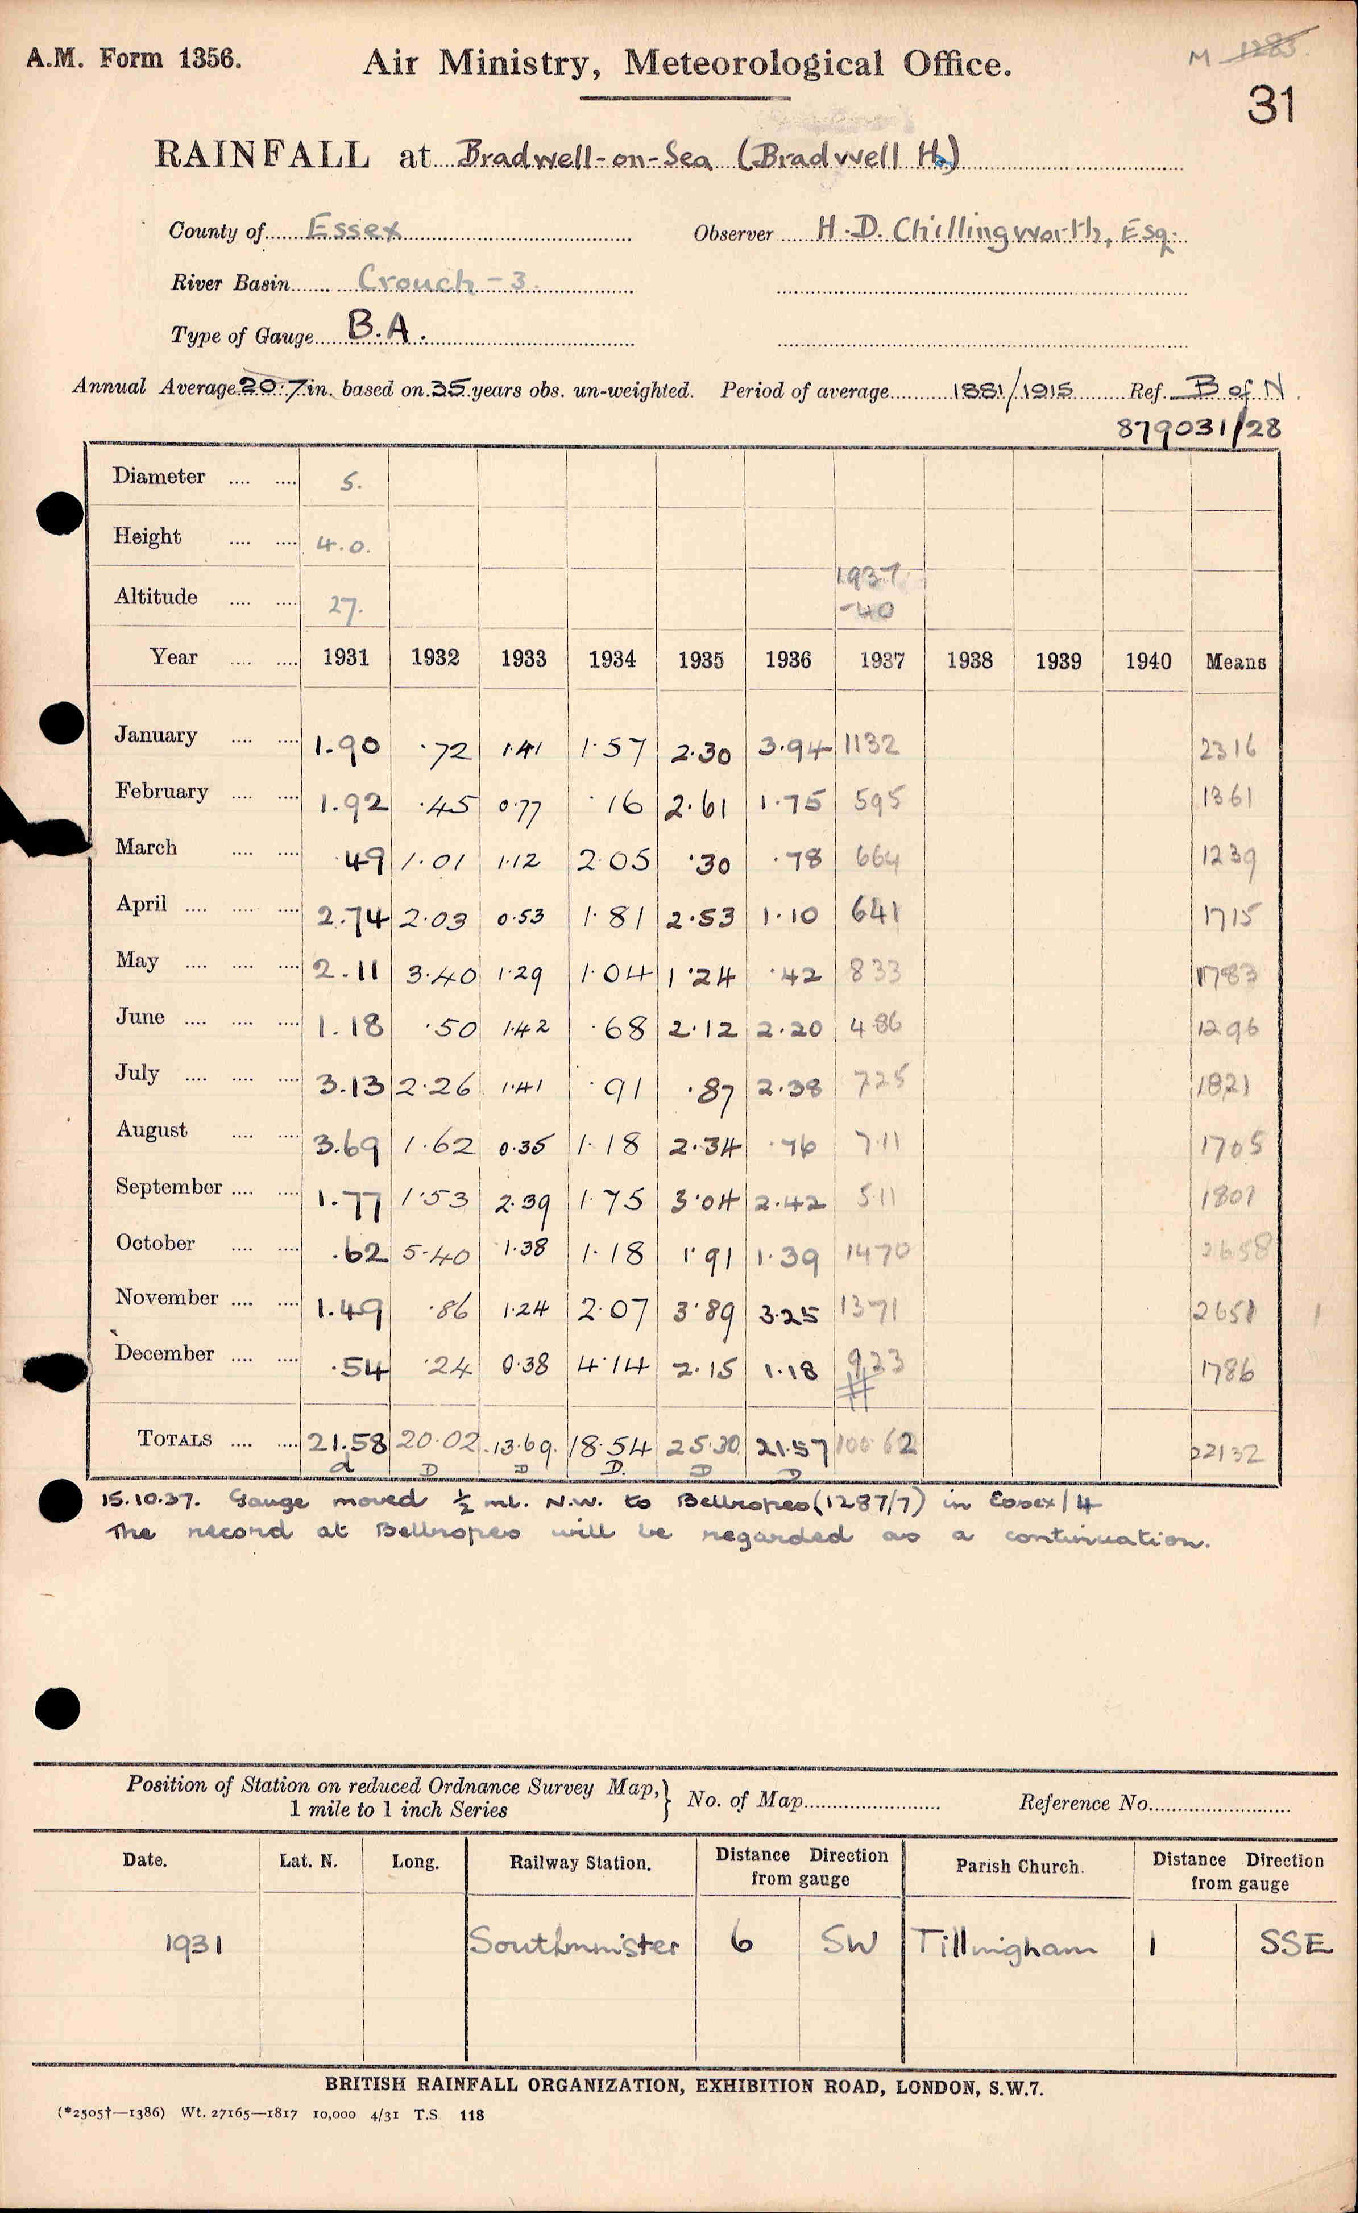 A.M. Form 1356.
Air Ministry, Meteorological Office.
M 1283.
31
RAINFALL at Bradwell-on-Sea (Bradwell Ho)
County of Essex Observer H.D. Chillingworth, Esq.
River Basin Crouch - 3.
Type of Gauge B.A.
Annual Average 20.7 in. based on 35 years obs. un-weighted. Period of average 1881/1915 Ref. B of N
879031/28
Diameter 5.
Height 4.0.
Altitude 27. 1937 -40
Year 1931 1932 1933 1934 1935 1936 1937 1938 1939 1940 Means
January 1.90 .72 1.41 1.57 2.30 3.94 1132 2316
February 1.92 .45 0.77 .16 2.61 1.75 595 1361
March .49 1.01 1.12 2.05 .30 .78 664 1239
April 2.74 2.03 0.53 1.81 2.53 1.10 641 1715
May 2.11 3.40 1.29 1.04 1.24 .42 833 1783
June 1.18 .50 1.42 .68 2.12 2.20 486 1296
July 3.13 2.26 1.41 .91 .87 2.38 725 1821
August 3.69 1.62 0.35 1.18 2.34 .76 711 1705
September 1.77 1.53 2.39 1.75 3.04 2.42 511 1801
October .62 5.40 1.38 1.18 1.91 1.39 1470 2658
November 1.49 .86 1.24 2.07 3.89 3.25 1371 2651
December .54 .24 0.38 4.14 2.15 1.18 923 1786
TOTALS 21.58 20.02 13.69 18.54 25.30 21.57 100 62 22132
d D D D. D D
15.10.37. Gauge moved ½ ml. N.W. to Bellropes (1287/7) in Essex/4
The record at Bellropes will be regarded as a continuation.
Position of Station on reduced Ordnance Survey Map, } No. of Map Reference No.
1 mile to 1 inch Series
Date. Lat. N. Long. Railway Station. Distance Direction from gauge Parish Church. Distance Direction from gauge
1931 Southminister 6 SW Tillingham 1 SSE
BRITISH RAINFALL ORGANIZATION, EXHIBITION ROAD, LONDON, S.W.7.
(*2505†—1386) Wt. 27165—1817 10,000 4/31 T.S. 118